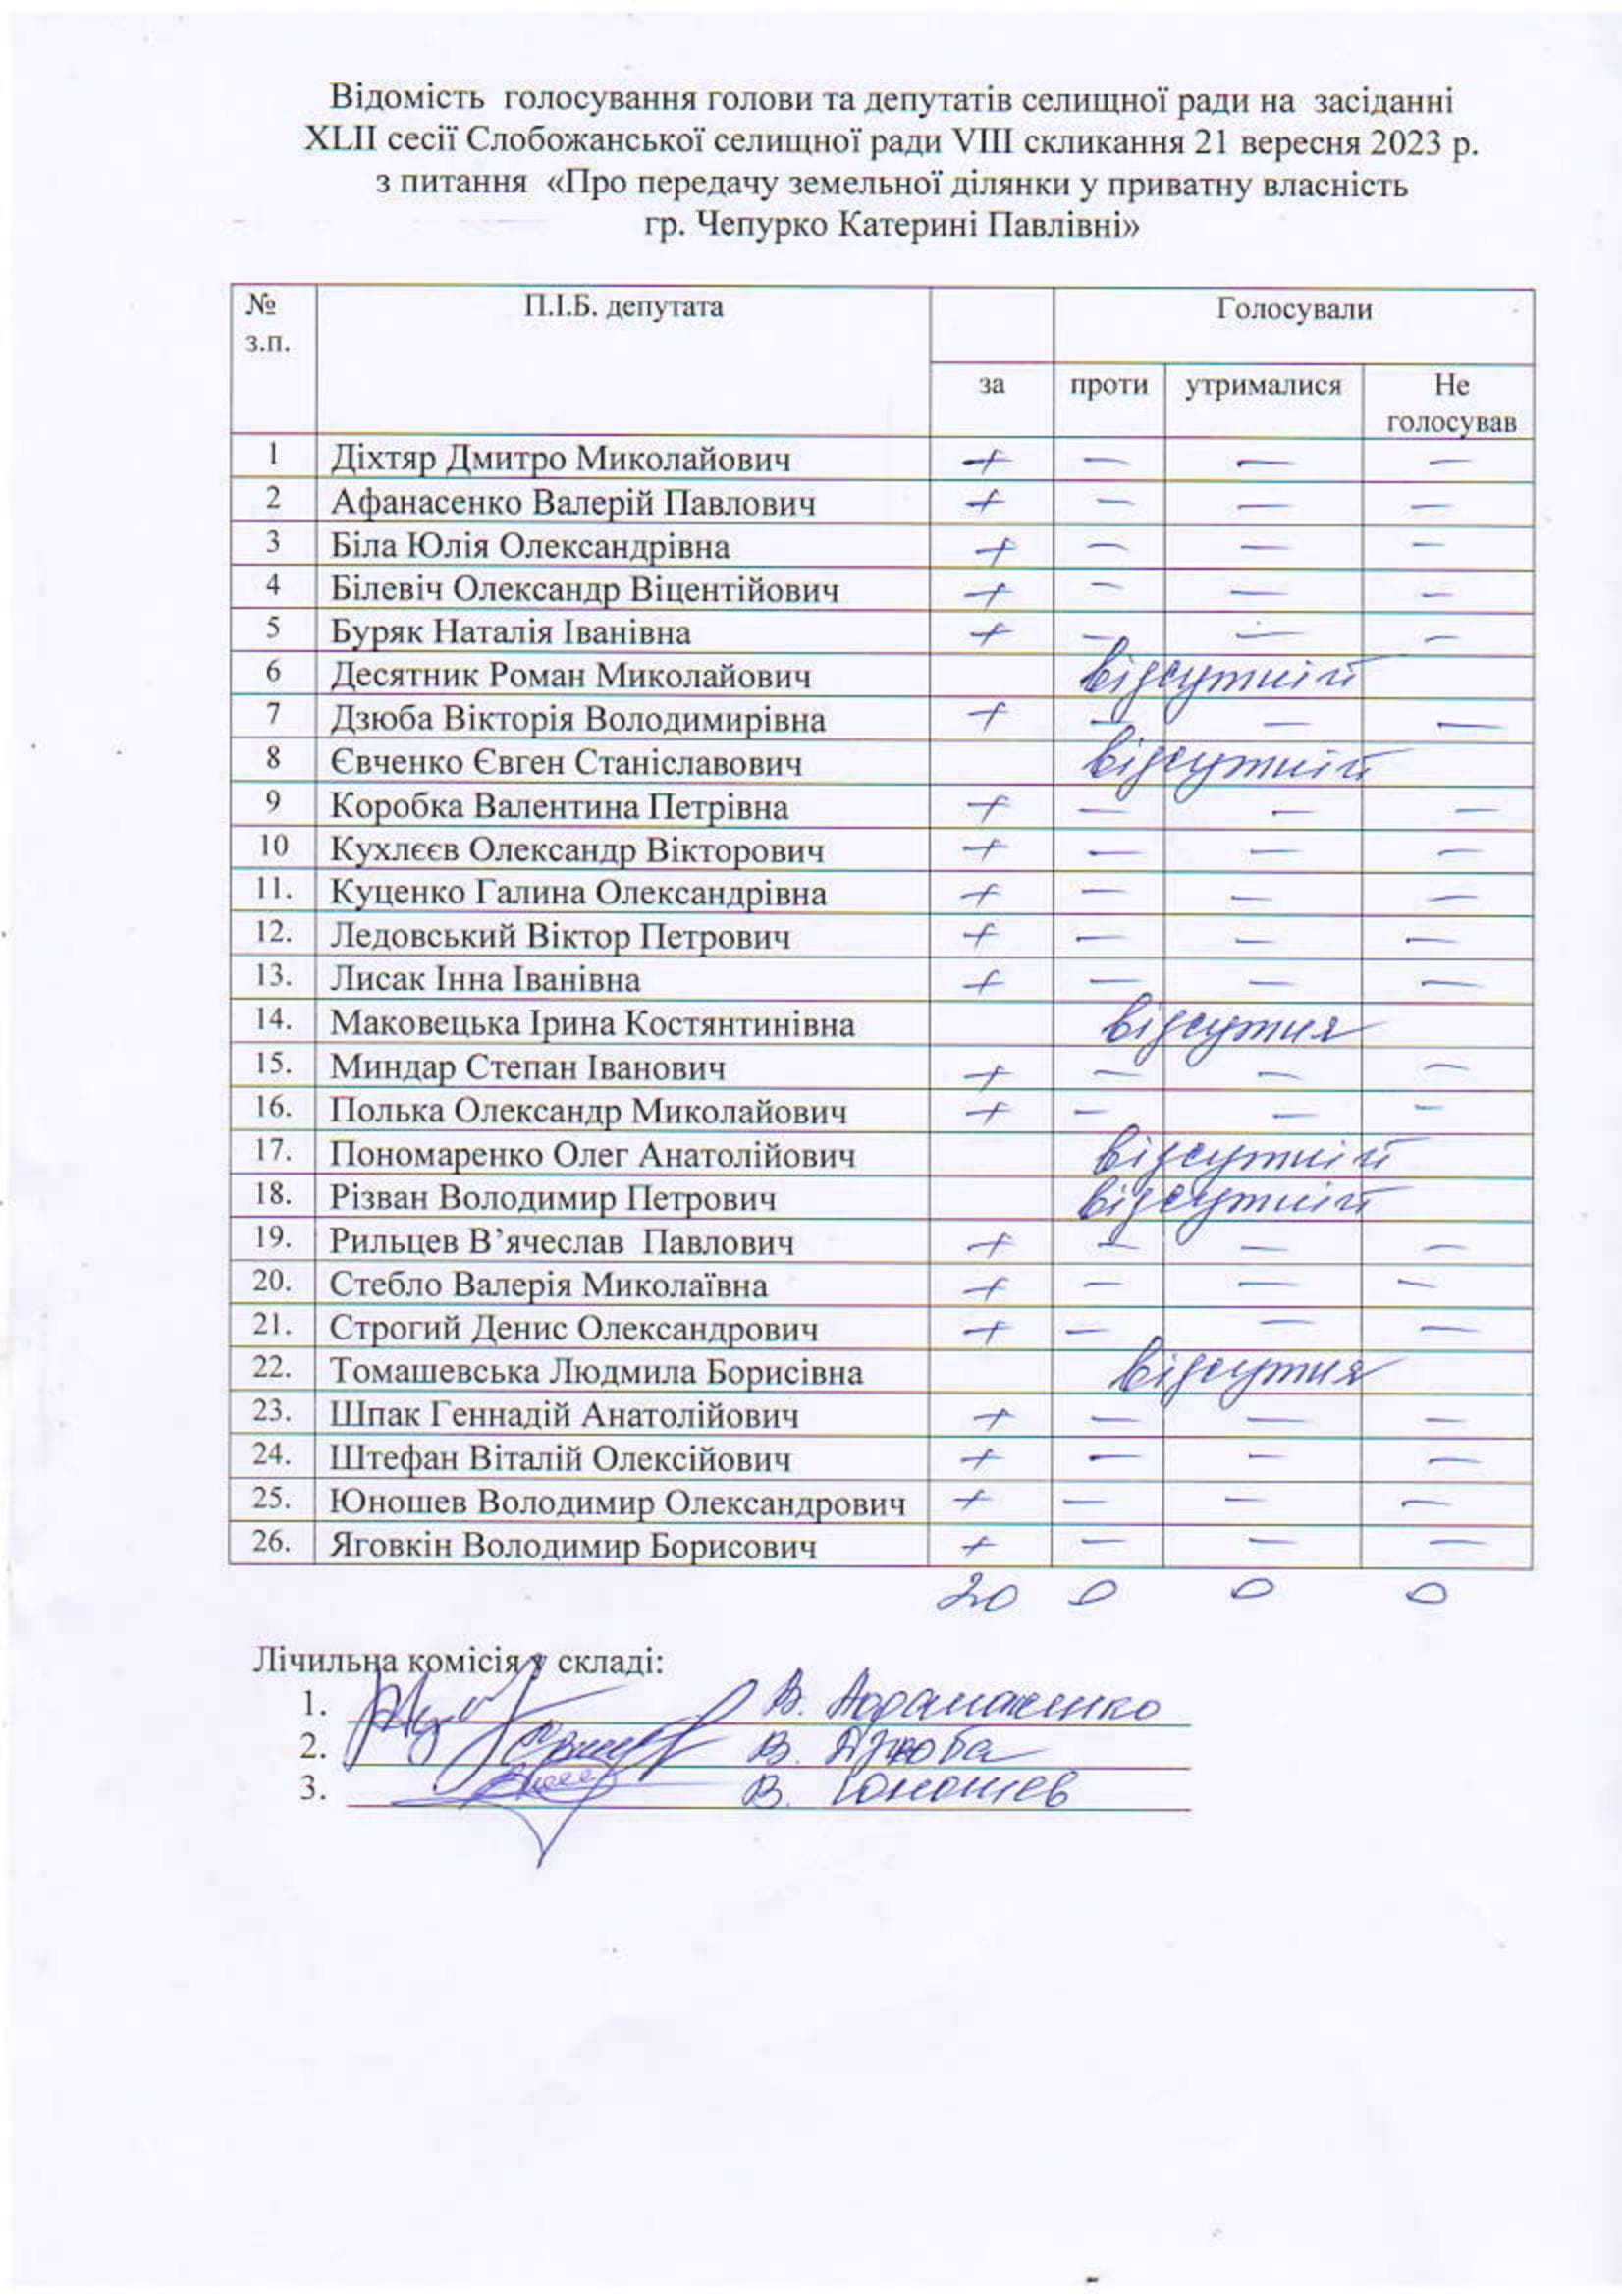 Відомість голосування голови та депутатів селищної ради на засіданні
XLII сесії Слобожанської селищної ради VIII скликання 21 вересня 2023 р.
з питання «Про передачу земельної ділянки у приватну власність
гр. Чепурко Катерині Павлівні»
№ з.п. П.І.Б. депутата Голосували
за проти утрималися Не голосував
1 Діхтяр Дмитро Миколайович + — — —
2 Афанасенко Валерій Павлович + — — —
3 Біла Юлія Олександрівна + — — —
4 Білевіч Олександр Віцентійович + — — —
5 Буряк Наталія Іванівна + — — —
6 Десятник Роман Миколайович відсутній
7 Дзюба Вікторія Володимирівна + — — —
8 Євченко Євген Станіславович відсутній
9 Коробка Валентина Петрівна + — — —
10 Кухлєєв Олександр Вікторович + — — —
11. Куценко Галина Олександрівна + — — —
12. Ледовський Віктор Петрович + — — —
13. Лисак Інна Іванівна + — — —
14. Маковецька Ірина Костянтинівна відсутня
15. Миндар Степан Іванович + — — —
16. Полька Олександр Миколайович + — — —
17. Пономаренко Олег Анатолійович відсутній
18. Різван Володимир Петрович відсутній
19. Рильцев В’ячеслав Павлович + — — —
20. Стебло Валерія Миколаївна + — — —
21. Строгий Денис Олександрович + — — —
22. Томашевська Людмила Борисівна відсутня
23. Шпак Геннадій Анатолійович + — — —
24. Штефан Віталій Олексійович + — — —
25. Юношев Володимир Олександрович + — — —
26. Яговкін Володимир Борисович + — — —
20 0 0 0
Лічильна комісія у складі:
1. В. Афанасенко
2. В. Дзюба
3. В. Юношев